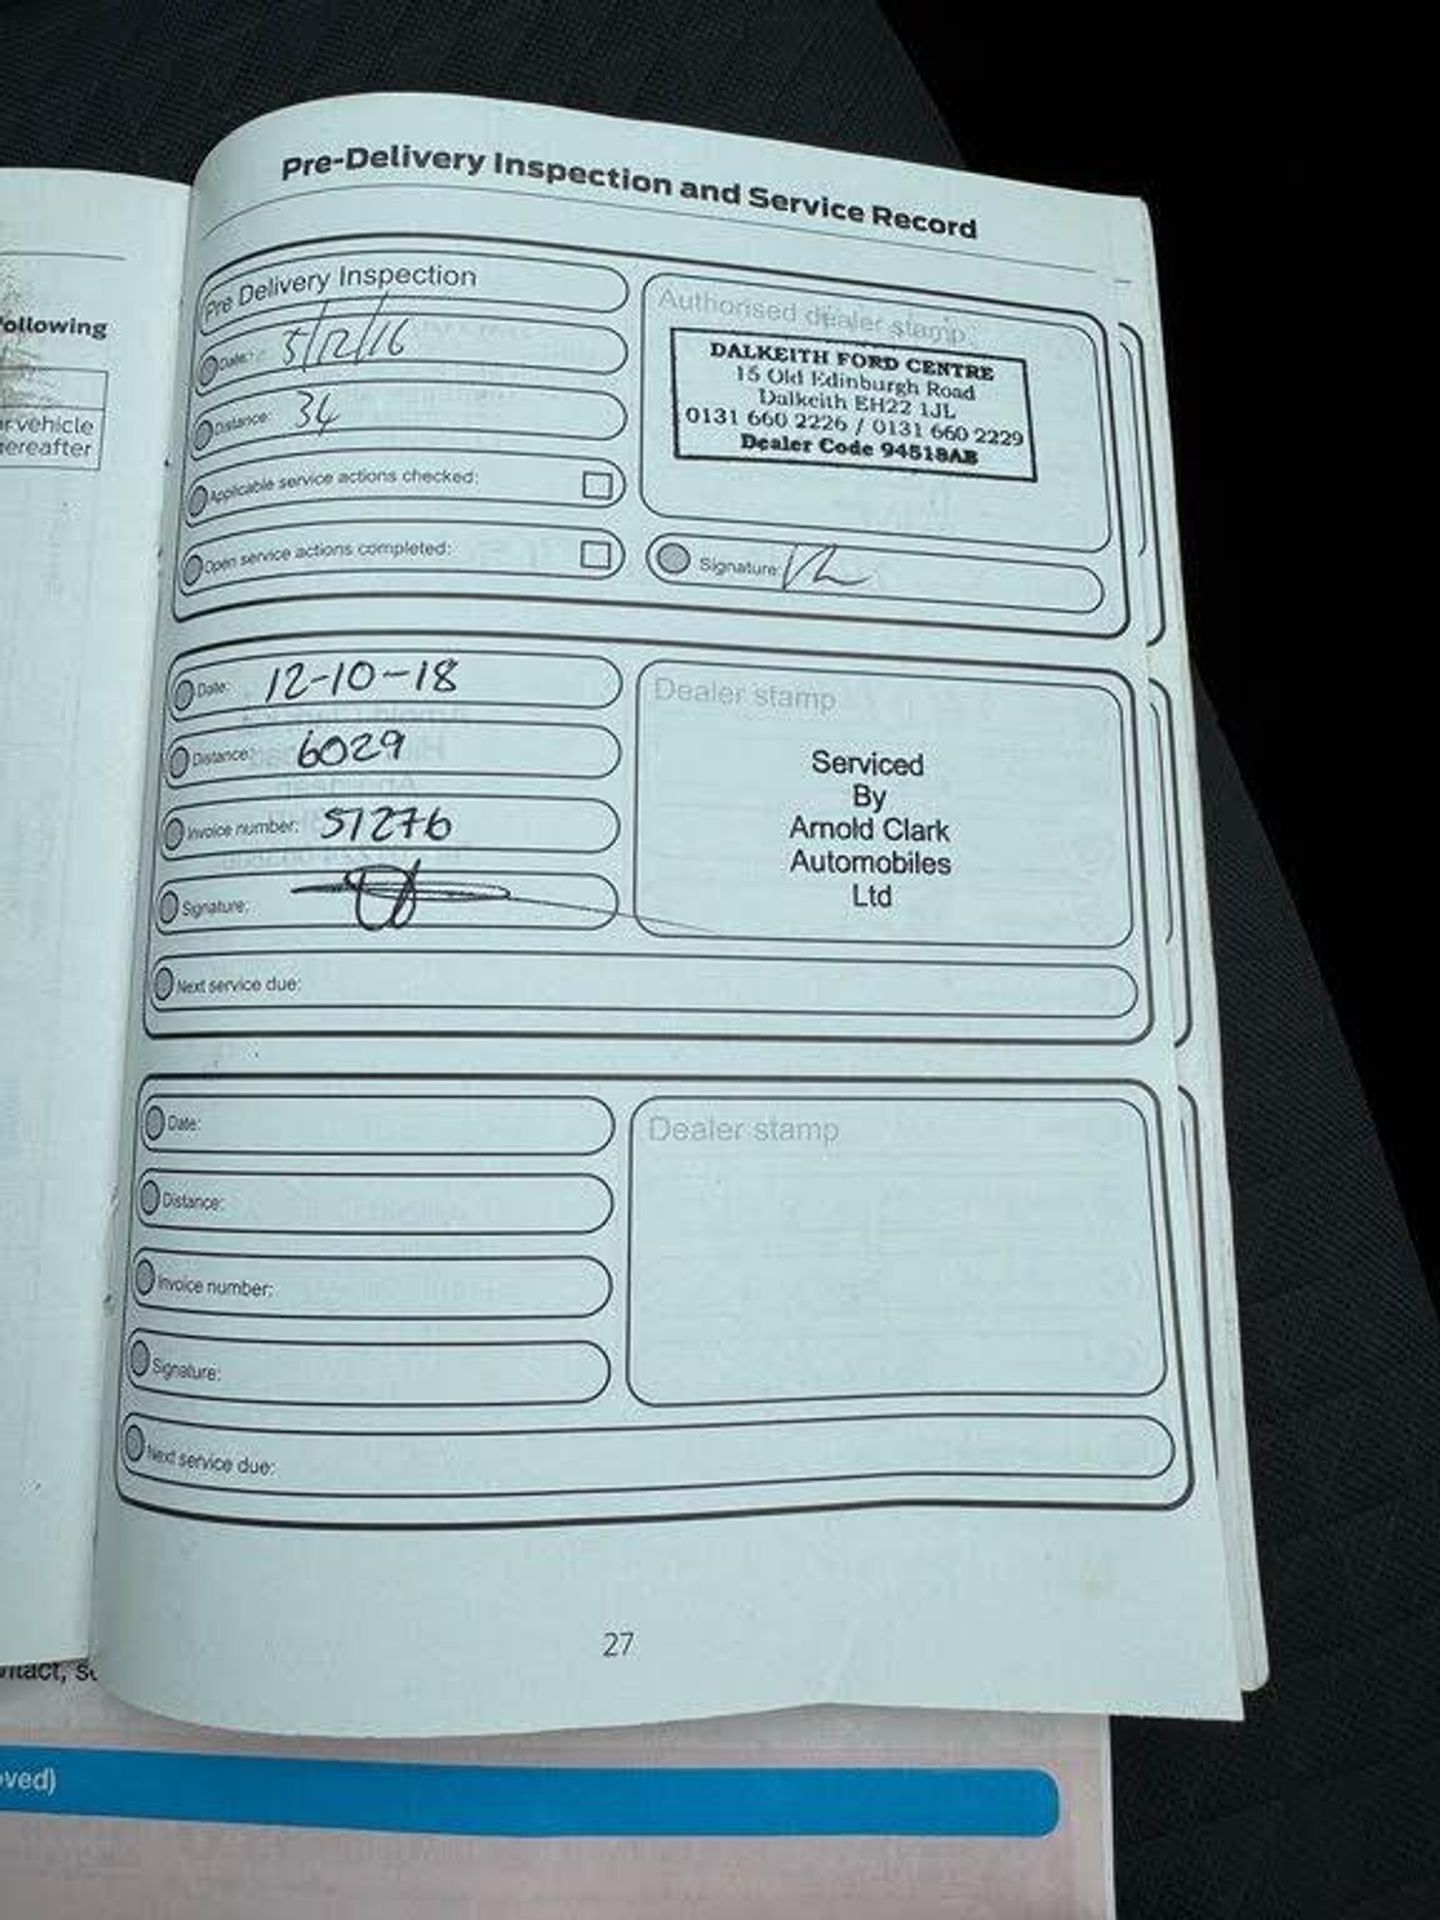 following
vehicle
hereafter
Pre-Delivery Inspection and Service Record
Pre Delivery Inspection
Date: 5/12/16
Distance: 34
Applicable service actions checked:
Open service actions completed:
Authorised dealer stamp
DALKEITH FORD CENTRE
15 Old Edinburgh Road
Dalkeith EH22 1JL
0131 660 2226 / 0131 660 2229
Dealer Code 94518AB
Signature:
Date: 12-10-18
Distance: 6029
Invoice number: 51276
Signature:
Next service due:
Dealer stamp
Serviced
By
Arnold Clark
Automobiles
Ltd
Date:
Distance:
Invoice number:
Signature:
Next service due:
Dealer stamp
27